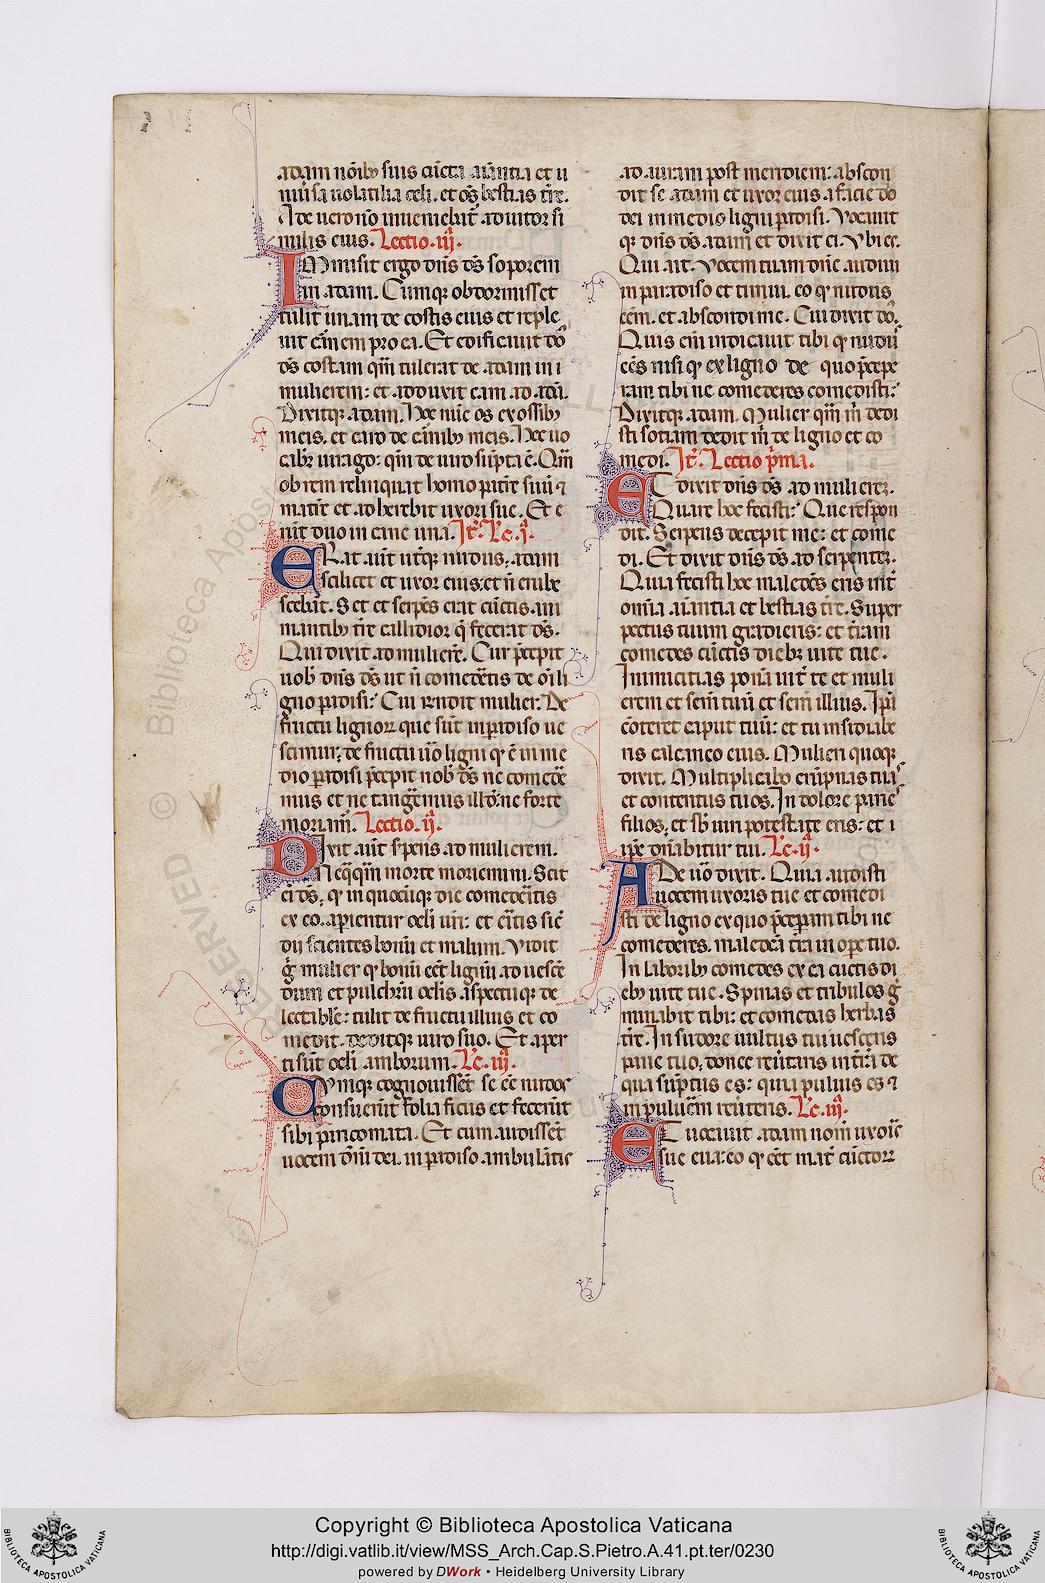 adam noībꝫ suis cūcta aīantia et u
niūsa uolatilia celi. et oēs bestias t̄re.
Ade uero nō inueniebat̄ adiutor si
milis eius. Lectio .iij.
INmisit ergo dn̄s dꝰs soporem
in adam. Cumqꝫ obdormisset
tulit unam de costis eius et reple
uit carnem pro ea. Et edificauit dn̄s
dꝰs costam qm̄ tulerat de adam in
mulierem: et adduxit eam ad adā.
Dixitqꝫ adam. Hoc nūc os ex ossibꝫ
meis. et caro de carnibꝫ meis. Hec uo
cabit̄ uirago: qm̄ de uiro sūpta ē. Qm̄
ob rem relinquat homo patrē suū ⁊
matrē et adherebit uxori sue. Et e
rūt duo in carne una. It̄. Lc. j.
ERat aūt uterqꝫ nudus. adam
scilicet et uxor eius: et nō erube
scebāt. Set et serpēs erat cūctis ani
mantibꝫ t̄re callidior q̄ fecerat dꝰs.
Qui dixit ad mulierē. Cur p̄cepit
uobis dꝰs ut nō comederētis de oī li
gno paradisi? Cui respondit mulier. De
fructu lignorꝫ que sūt in paradiso ue
scimur; de fructu uō ligni qd̄ ē in me
dio paradisi p̄cepit nobis dꝰs ne comedē
mus et ne tangēmus illud: ne forte
moriam̄. Lectio .ij.
DIxit aūt serpens ad mulierem.
Neq̄q̄m morte moriemini. Scit
eī dꝰs. qd̄ in quocūqꝫ die comederitis
ex eo. aperientur oculi ur̄i: et eritis sic̄
dii scientes bonū et malum. Vidit
g̊ mulier qd̄ bonū eēt lignū ad uescē
dum et pulchrū oculis. aspectuqꝫ de
lectabile: tulit de fructu illius et co
medit. deditqꝫ uiro suo. Et aper
ti sūt oculi amborum. Lc. iij.
CVmqꝫ cognouissēt se eē nudos
consuerūt folia ficus et fecerūt
sibi perizomata. Et cum audissēt
uocem dn̄i dei. in paradiso ambulātis
ad auram post meridiem: abscon
dit se adam et uxor eius a facie do
dei in medio ligni paradisi. Vocauit
qꝫ dn̄s dꝰs adam et dixit ei. Vbi es.
Qui ait. Vocem tuam dn̄e audiui
in paradiso et timui. eo qd̄ nudus
eēm. et abscondi me. Cui dixit dꝰs.
Quis eī indicauit tibi qd̄ nudū
eēs nisi qd̄ ex ligno de quo p̄cepe
ram tibi ne comederes comedisti?
Dixitqꝫ adam. Mulier qm̄ m̄ dedi
sti sotiam dedit m̄ de ligno et co
medi. It̄. Lectio p̄ma.
ET dixit dn̄s dꝰs ad mulierē.
Quare hoc fecisti? Que respon
dit. Serpens decepit me: et come
di. Et dixit dn̄s dꝰs ad serpentē.
Quia fecisti hoc maledcs̄ eris int̄
omīa aīantia et bestias t̄re. Super
pectus tuum gradieris: et t̄ram
comedes cūctis diebꝫ uite tue.
Inimicitias ponā int̄ te et muli
erem et semē tuū et semē illius. Ip̄a
cōteret caput tuū: et tu insidiabe
ris calcaneo eius. Mulieri quoqꝫ
dixit. Multiplicabo erūpnas tuas
et conceptus tuos. In dolore paries
filios. et sub uiri potestate eris: et i
ipē dn̄abitur tui. Lc. ij.
ADe uō dixit. Quia audisti
uocem uxoris tue et comedi
sti de ligno ex quo p̄ceperam tibi ne
comederes. maledcā t̄ra in ope tuo.
In laboribꝫ comedes ex ea cūctis di
ebꝫ uite tue. Spinas et tribulos g̊
minabit tibi: et comedas herbas
t̄re. In sudore uultus tui uesceris
pane tuo, donec reutaris in t̄rā de
qua sūptus es: quia puluis es ⁊
in puluerē reūteris. Lc. iij.
ET uocauit adam nom̄ uxoris
sue eua: eo qd̄ eēt mat̄ cūctorꝫ
Copyright © Biblioteca Apostolica Vaticana
http://digi.vatlib.it/view/MSS_Arch.Cap.S.Pietro.A.41.pt.ter/0230
powered by DWork • Heidelberg University Library
BIBLIOTECA APOSTOLICA VATICANA
BIBLIOTECA APOSTOLICA VATICANA